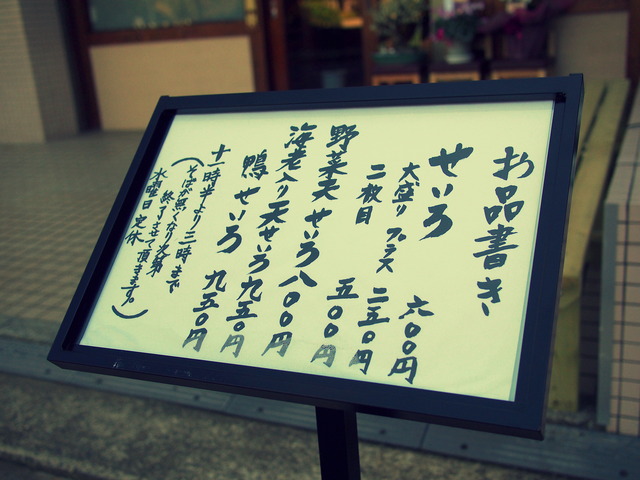 お品書き
せいろ 六〇〇円
大盛り プラス 二五〇円
二枚目 五〇〇円
野菜天せいろ 八〇〇円
海老入り天せいろ 九五〇円
鴨せいろ 九五〇円
十一時半より三時まで
(そばが無くなり次第
終了させて頂きます。)
水曜日 定休